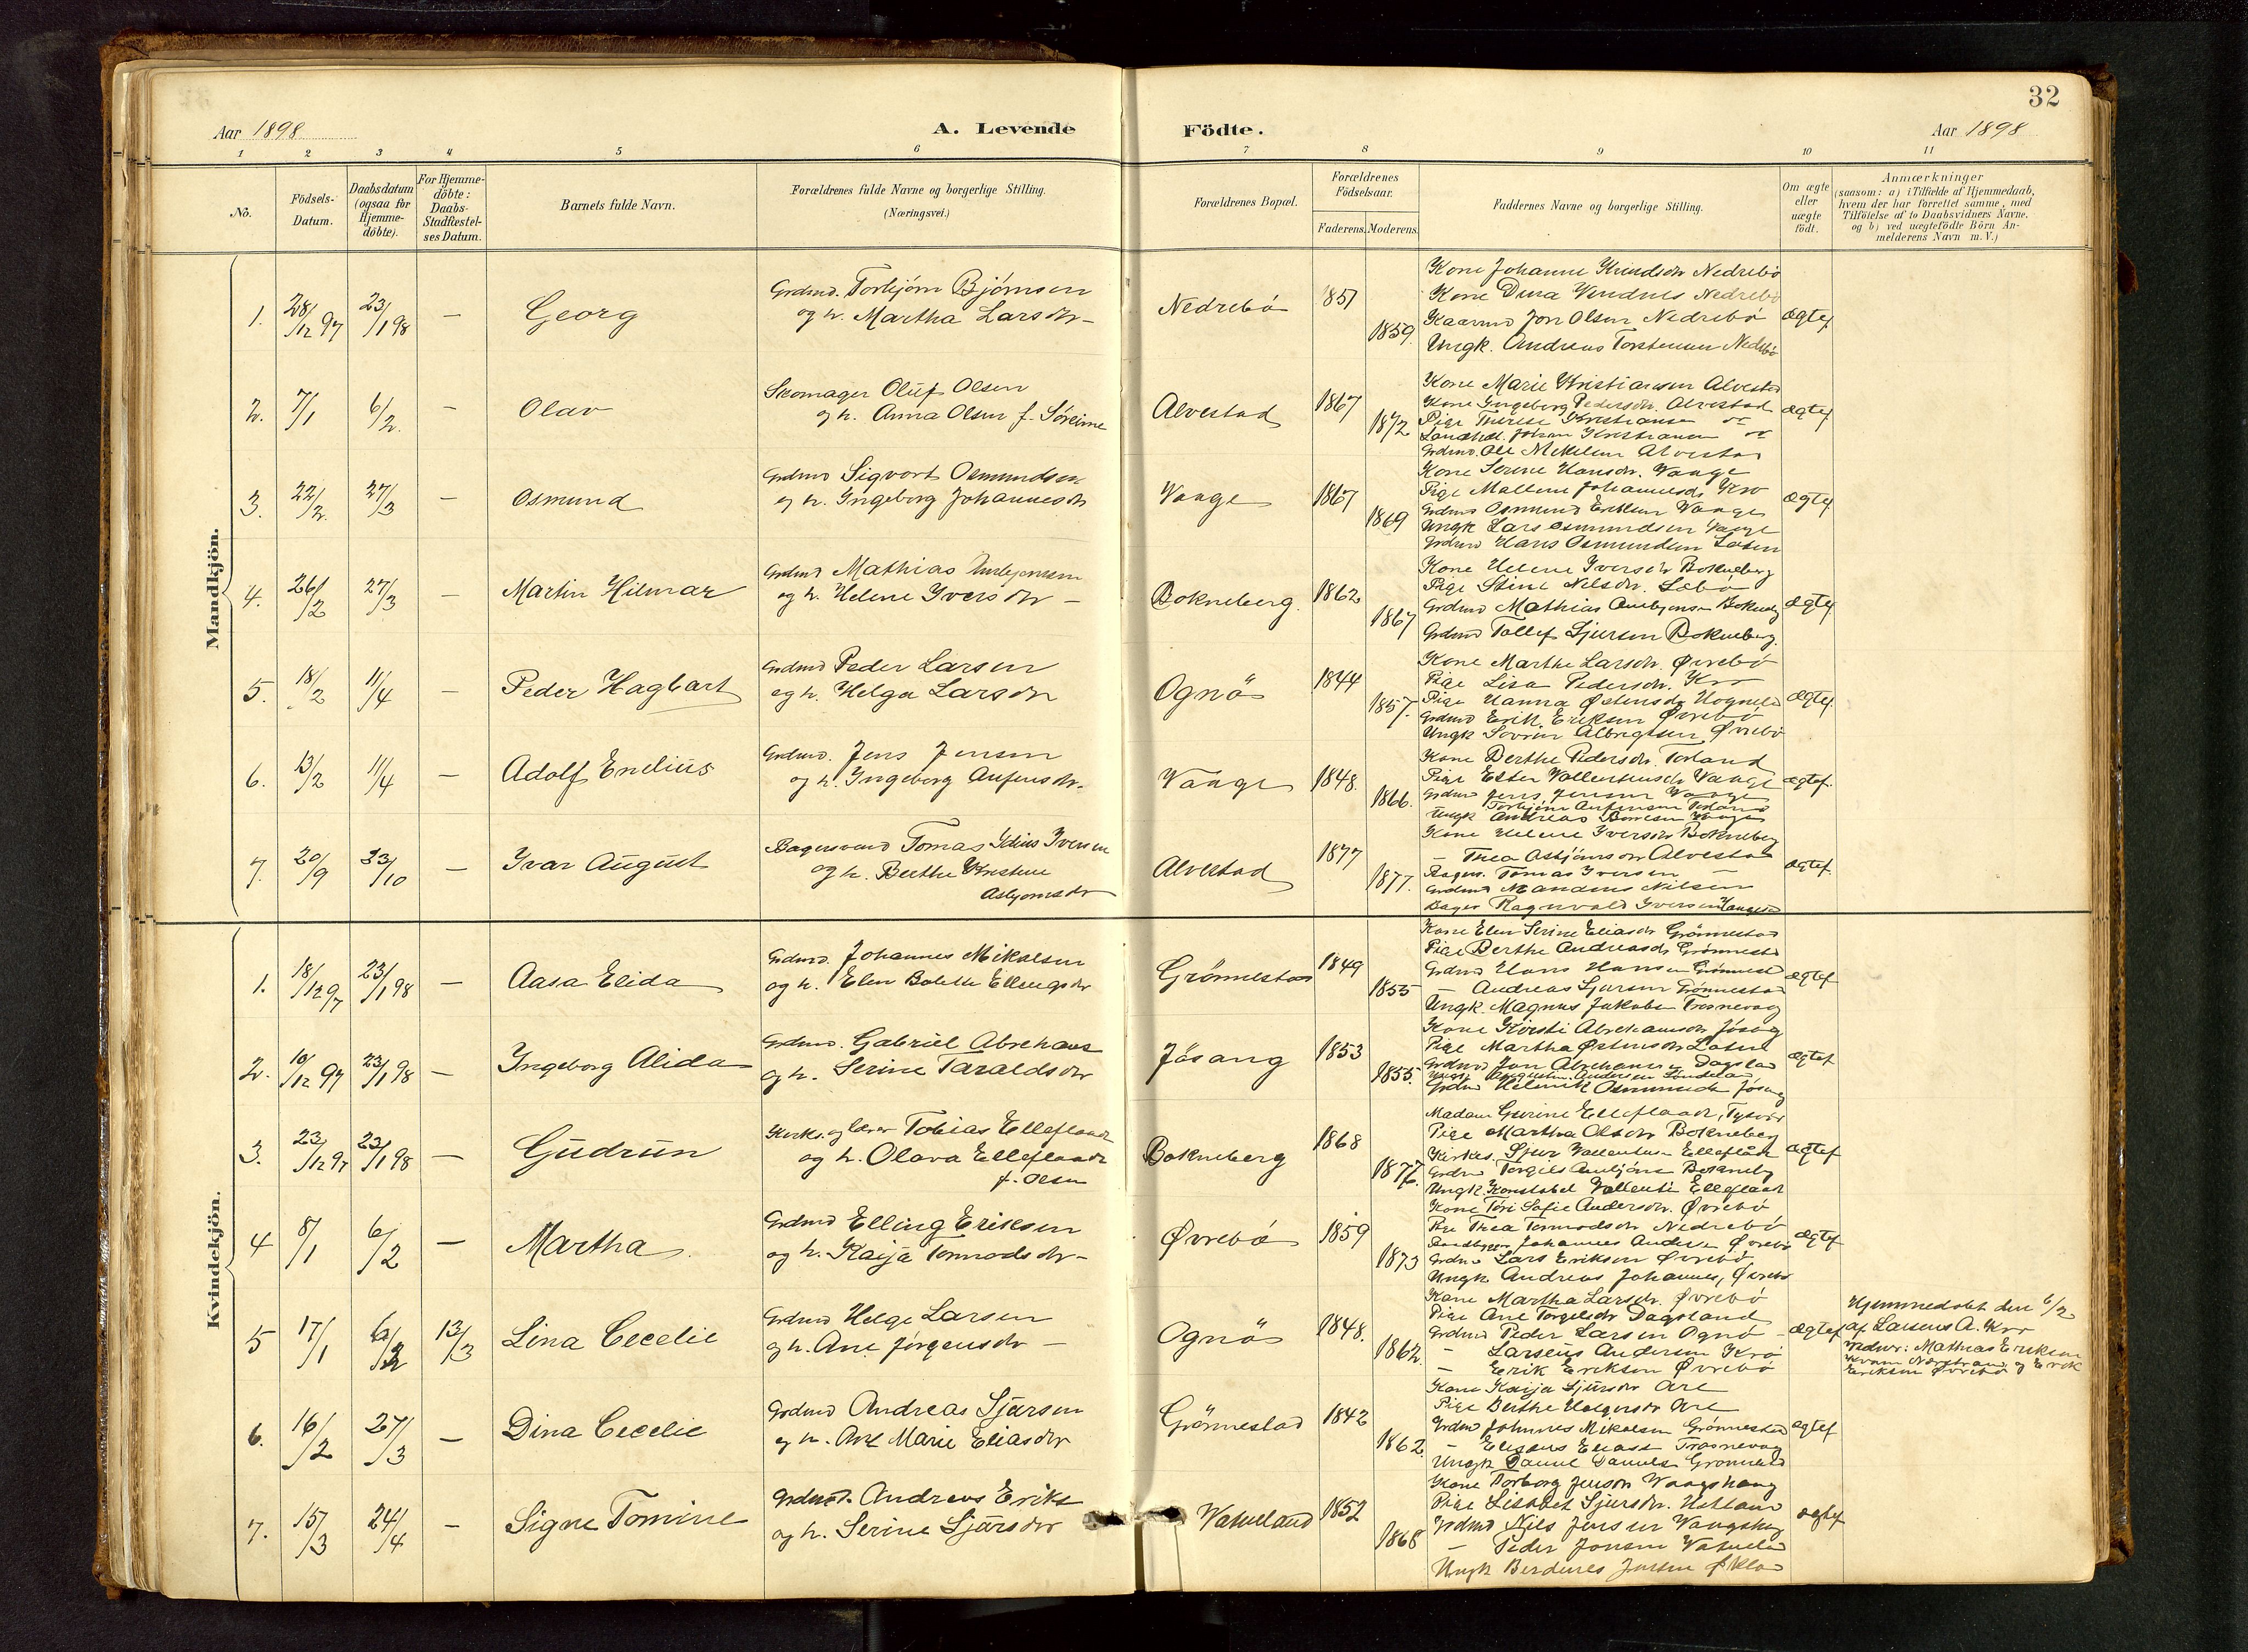 32
Aar 1898
A. Levende
Födte.
Aar 1898
1 2 3 4 5 6 7 8 9 10 11
No.
Födsels-
Datum.
Daabsdatum
(ogsaa for
Hjemme-
döbte).
For Hjemme-
döbte:
Daabs-
Stadfæstel-
ses Datum.
Barnets fulde Navn.
Forældrenes fulde Navne og borgerlige Stilling.
(Næringsvei.)
Forældrenes Bopæl.
Forældrenes
Födselsaar.
Faderens. Moderens.
Faddernes Navne og borgerlige Stilling.
Om ægte
eller
uægte
födt.
Anmærkninger
(saasom: a) i Tilfælde af Hjemmedaab,
hvem der har forrettet samme, med
Tilföielse af to Daabsvidners Navne,
og b) ved uægtefödte Börn An-
melderens Navn m.V.)
Mandkjön.
1. 28/12 97 23/1 98 — Georg
Grdmd. Torbjörn Bjørnsen
og h. Martha Larsdtr —
Nedrebö 1851 1859.
Kone Johanne Knudsdtr Nedrebö
Kone Nedrebö
Kaarmd Jon Olsen Nedrebö
Ungk. Andreas Torstensen Nedrebö
ægtef.
2. 7/1 6/2. — Olav
Skomager Oluf Olsen
og h. Anna Olsen f. Søreime
Alvestad 1867 1872
Kone Marie Kristiansen Alvestad
Kone Ingeborg Pedersdtr. Alvestad
Pige Therese Kristiansen
Landhdl. Johan Kristiansen
Grdmd. Ole Mikkelsen Alvestad
ægtef
3. 22/2. 27/3 — Osmund
Grdmd Sigvort Osmundsen
og h. Ingeborg Johannesdtr
Vaage 1867 1869
Kone Serine Hansdtr. Vaage
Pige Mallene Johannesdtr Kro
Grdmd Osmund Eriksen Vaage
Ungk Lars Osmundsen Vaage
Grdmd Hans Osmundsen
ægtef
4. 26/2 27/3 — Martin Hilmar
Grdmd Mathias
og h. Helene Iversdtr —
Bokneberg. 1862 1867
Kone Helene Iversdtr Bokneberg
Pige Stine Nilsdtr.
Grdmd Mathias Bokneberg
Grdmd Tollef Sjursen Bokneberg.
ægtef.
5. 18/2 11/4 — Peder Hagbart
Grdmd Peder Larsen
og h. Helga Larsdtr
Ognö 1844 1857.
Kone Marthe Larsdtr. Øvrebö
Pige Lisa Pedersdtr. Kro
Pige Hanna Østensdtr
Grdmd Erik Eriksen Øvrebö
Ungk Sovrin Albrigtsen Øvrebö
ægtef.
6. 13/2 11/4 — Adolf Enelius
Grdmd. Jens Jensen
og h. Ingeborg Anfinsdtr.
Vaage 1848. 1866.
Kone Berthe Pedersdtr. Torland
Pige Ester Vallentinsdtr Vaage
Grdmd Jens Jensen Vaage
Torbjörn Anfinsen Torland
Ungk Andreas Vaage
ægtef.
7. 20/9 23/10 — Ivar August
Bagersvend Tomas Iversen
og h. Berthe Kristine
Asbjornsdtr
Alvestad 1877 1877.
Kone Helene Iversdtr Bokneberg
— Thea Asbjörnsdtr Alvestad
Bagers. Tomas Iversen —
Grdmd Mandius Nilsen
Bager Ragnvald Iversen
ægtef.
Kvindekjön.
1. 18/12 97 23/1 98 — Aasa Elida
Grdmd. Johannes Mikalsen
og h. Elen Bolette Ellingsdtr
Grönnestad 1849 1855
Kone Elen Serine Eliasdtr Grönnestad
Pige Berthe Andreasdtr Grönnestad
Grdmd Hans Hansen Grönnestad
— Andreas Sjursen Grönnestad
Ungk. Magnus Jakobsen Trosnevag
ægtef
2. 10/12 97 23/1 98 — Ingeborg Alida
Grdmd. Gabriel Abrehams
og h. Serine Taraldsdtr
Jösang 1853 1855.
Kone Kirsti Abrehamsdtr Jösang
Pige Martha Østensdtr
Grdmd Jon Abrehamsen Dagsland
Grdmd Helmik Osmundsen Jösang
ægtef
3. 23/12 97 23/1 98 — Gudrun
Kirks. og lærer Tobias Elleflaadt
og h. Olava Elleflaadt
f. Olsen
Bokneberg 1868 1877.
Madam Elleflaadt, Tysvær
Pige Martha Olsdtr Bokneberg
Kirkes. Sjur Vallentinsen Elleflaadt
Grdmd Torgils Bokneberg
Ungk. Konstabel Vallentin Elleflaadt
ægtef
4 8/1 6/2 — Martha
Grdmd Elling Eriksen
og h. Kaija Tormodsdtr —
Øvrebö 1859 1873
Kone Töri Sofie Andersdtr. Øvrebö
Pige Thea Tormodsdtr Nedrebö
Johannes Andersen Øvrebö
Grdmd Lars Eriksen Øvrebö
Ungk Andreas Johannes, Øvrebö
ægtef
5 17/1 6/2 13/3 Lina Cecelie
Grdmd Helge Larsen
og h. Ane Jörgensdtr —
Ognö 1848. 1862.
Kone Martha Larsdtr. Øvrebö
Pige Ane Torgilsdtr Dagsland
Grdmd Peder Larsen Ognö
— Larsens Andersen Krö
— Erik Eriksen Øvrebö
ægtef
Hjemmedöbt den 6/2
af Larsens A. Kro
Vidner: Mathias Eriksen
og Erik
Eriksen Øvrebö
6. 16/2 27/3 — Dina Cecelie
Grdmd Andreas Sjursen
og h. Ane Marie Eliasdtr
Grönnestad 1842 1862.
Kone Kaija Sjursdtr Are
Pige Berthe Helgesdtr Are
Grdmd Johannes Mikalsen Grönnestad
— Eliseus Eliass Trosnevag
Ungk Daniel Daniels Grönnestad
ægtef
7. 15/3 24/4 — Signe Tomine
Grdmd. Andreas Eriks
og h. Serine Sjursdtr
Vatneland 1852 1868
Kone Torborg Jensdtr Vaagshaug
Pige Lisabet Sjursdtr.
Grdmd Nils Jensen Vaagshaug
— Peder Jonsen Vatneland
Ungk
ægtef